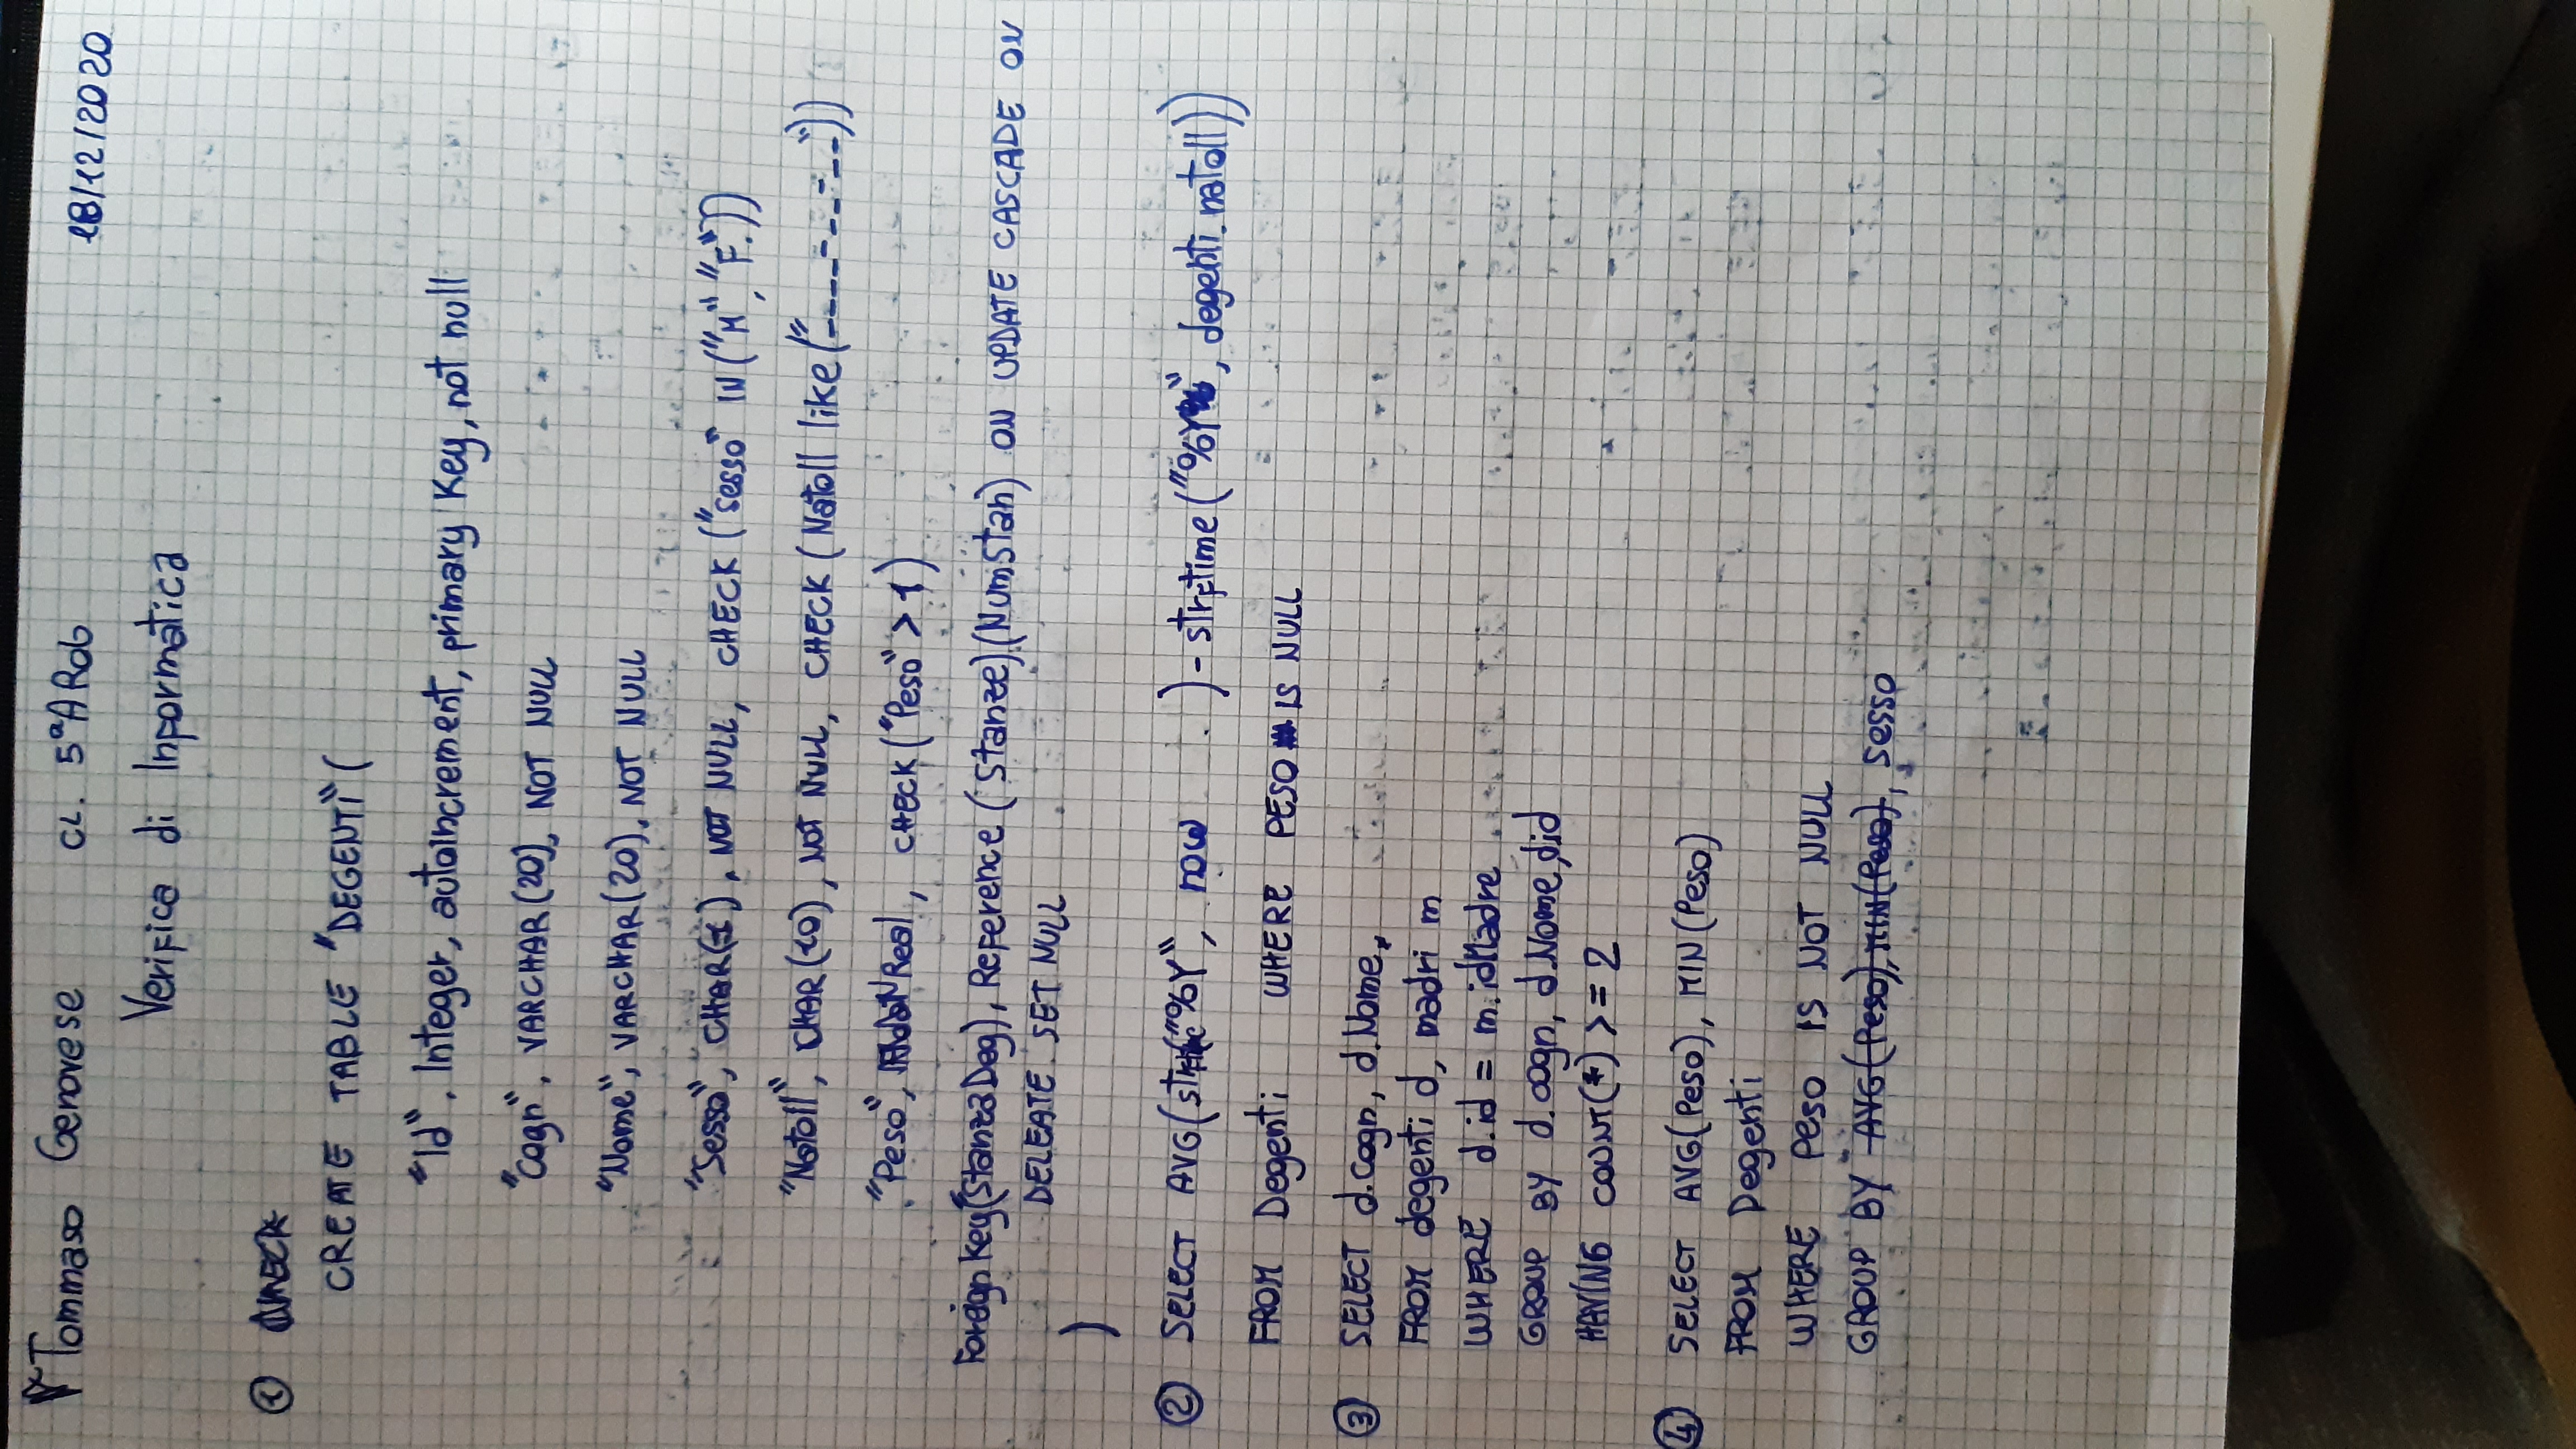 Tommaso Genovese CL. 5ªA Rob 18/12/2020
Verifica di Informatica
①
CREATE TABLE "DEGENTI" (
"Id", Integer, autoincrement, primary Key, not null
"Cogn", VARCHAR(20), NOT NULL
"Nome", VARCHAR(20), NOT NULL
"Sesso", CHAR(1), NOT NULL, CHECK ("sesso" IN ("M", "F"))
"NatoIl", CHAR(10), NOT NULL, CHECK (NatoIl like ("____-__-__"))
"Peso", Real, CHECK ("Peso" > 1)
Foreign Key("StanzaDeg), Reference (Stanze)(NumStan) ON UPDATE CASCADE ON
DELEATE SET NULL
)
② SELECT AVG( ("%Y", now ) - strftime ("%Y", degenti.natoIl))
FROM Degenti WHERE PESO IS NULL
③ SELECT d.cogn, d.Nome,
FROM degenti d, madri m
WHERE d.id = m.idMadre
GROUP BY d.cogn, d.Nome, d.id
HAVING COUNT(*) >= 2
④ SELECT AVG(Peso), MIN(Peso)
FROM Degenti
WHERE Peso IS NOT NULL
GROUP BY AVG(Peso), MIN(Peso), Sesso